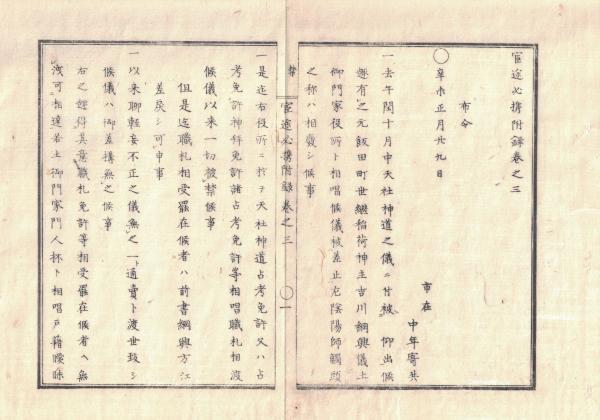 官途必携附録巻之三
布令
〇辛未正月廿九日
市在
中年寄共
一去午閏十月中天社神道之儀ニ付被 仰出候
趣有之元飯田町世継稲荷神主吉川綱興儀土
御門家役所ト相唱候儀被差止尤陰陽師觸頭
之称ハ相廃シ候事
禁 官途必携附録巻之三 〇一
一是迄右役所ニ於テ天社神道占考免許又ハ占
考免許神拜免許諸占考免許等相唱職札相渡
候儀以来一切被禁候事
但是迄職札相受罷在候者ハ前書綱興方江
差戻シ可申事
一以来聊軽妄不正之儀無之一ト通賣ト渡世致シ
候儀ハ御差搆無之候事
右之趣得其意職札免許等相受罷在候者ヘ無
洩可相達若土御門家門人抔ト相唱戸籍曖昧